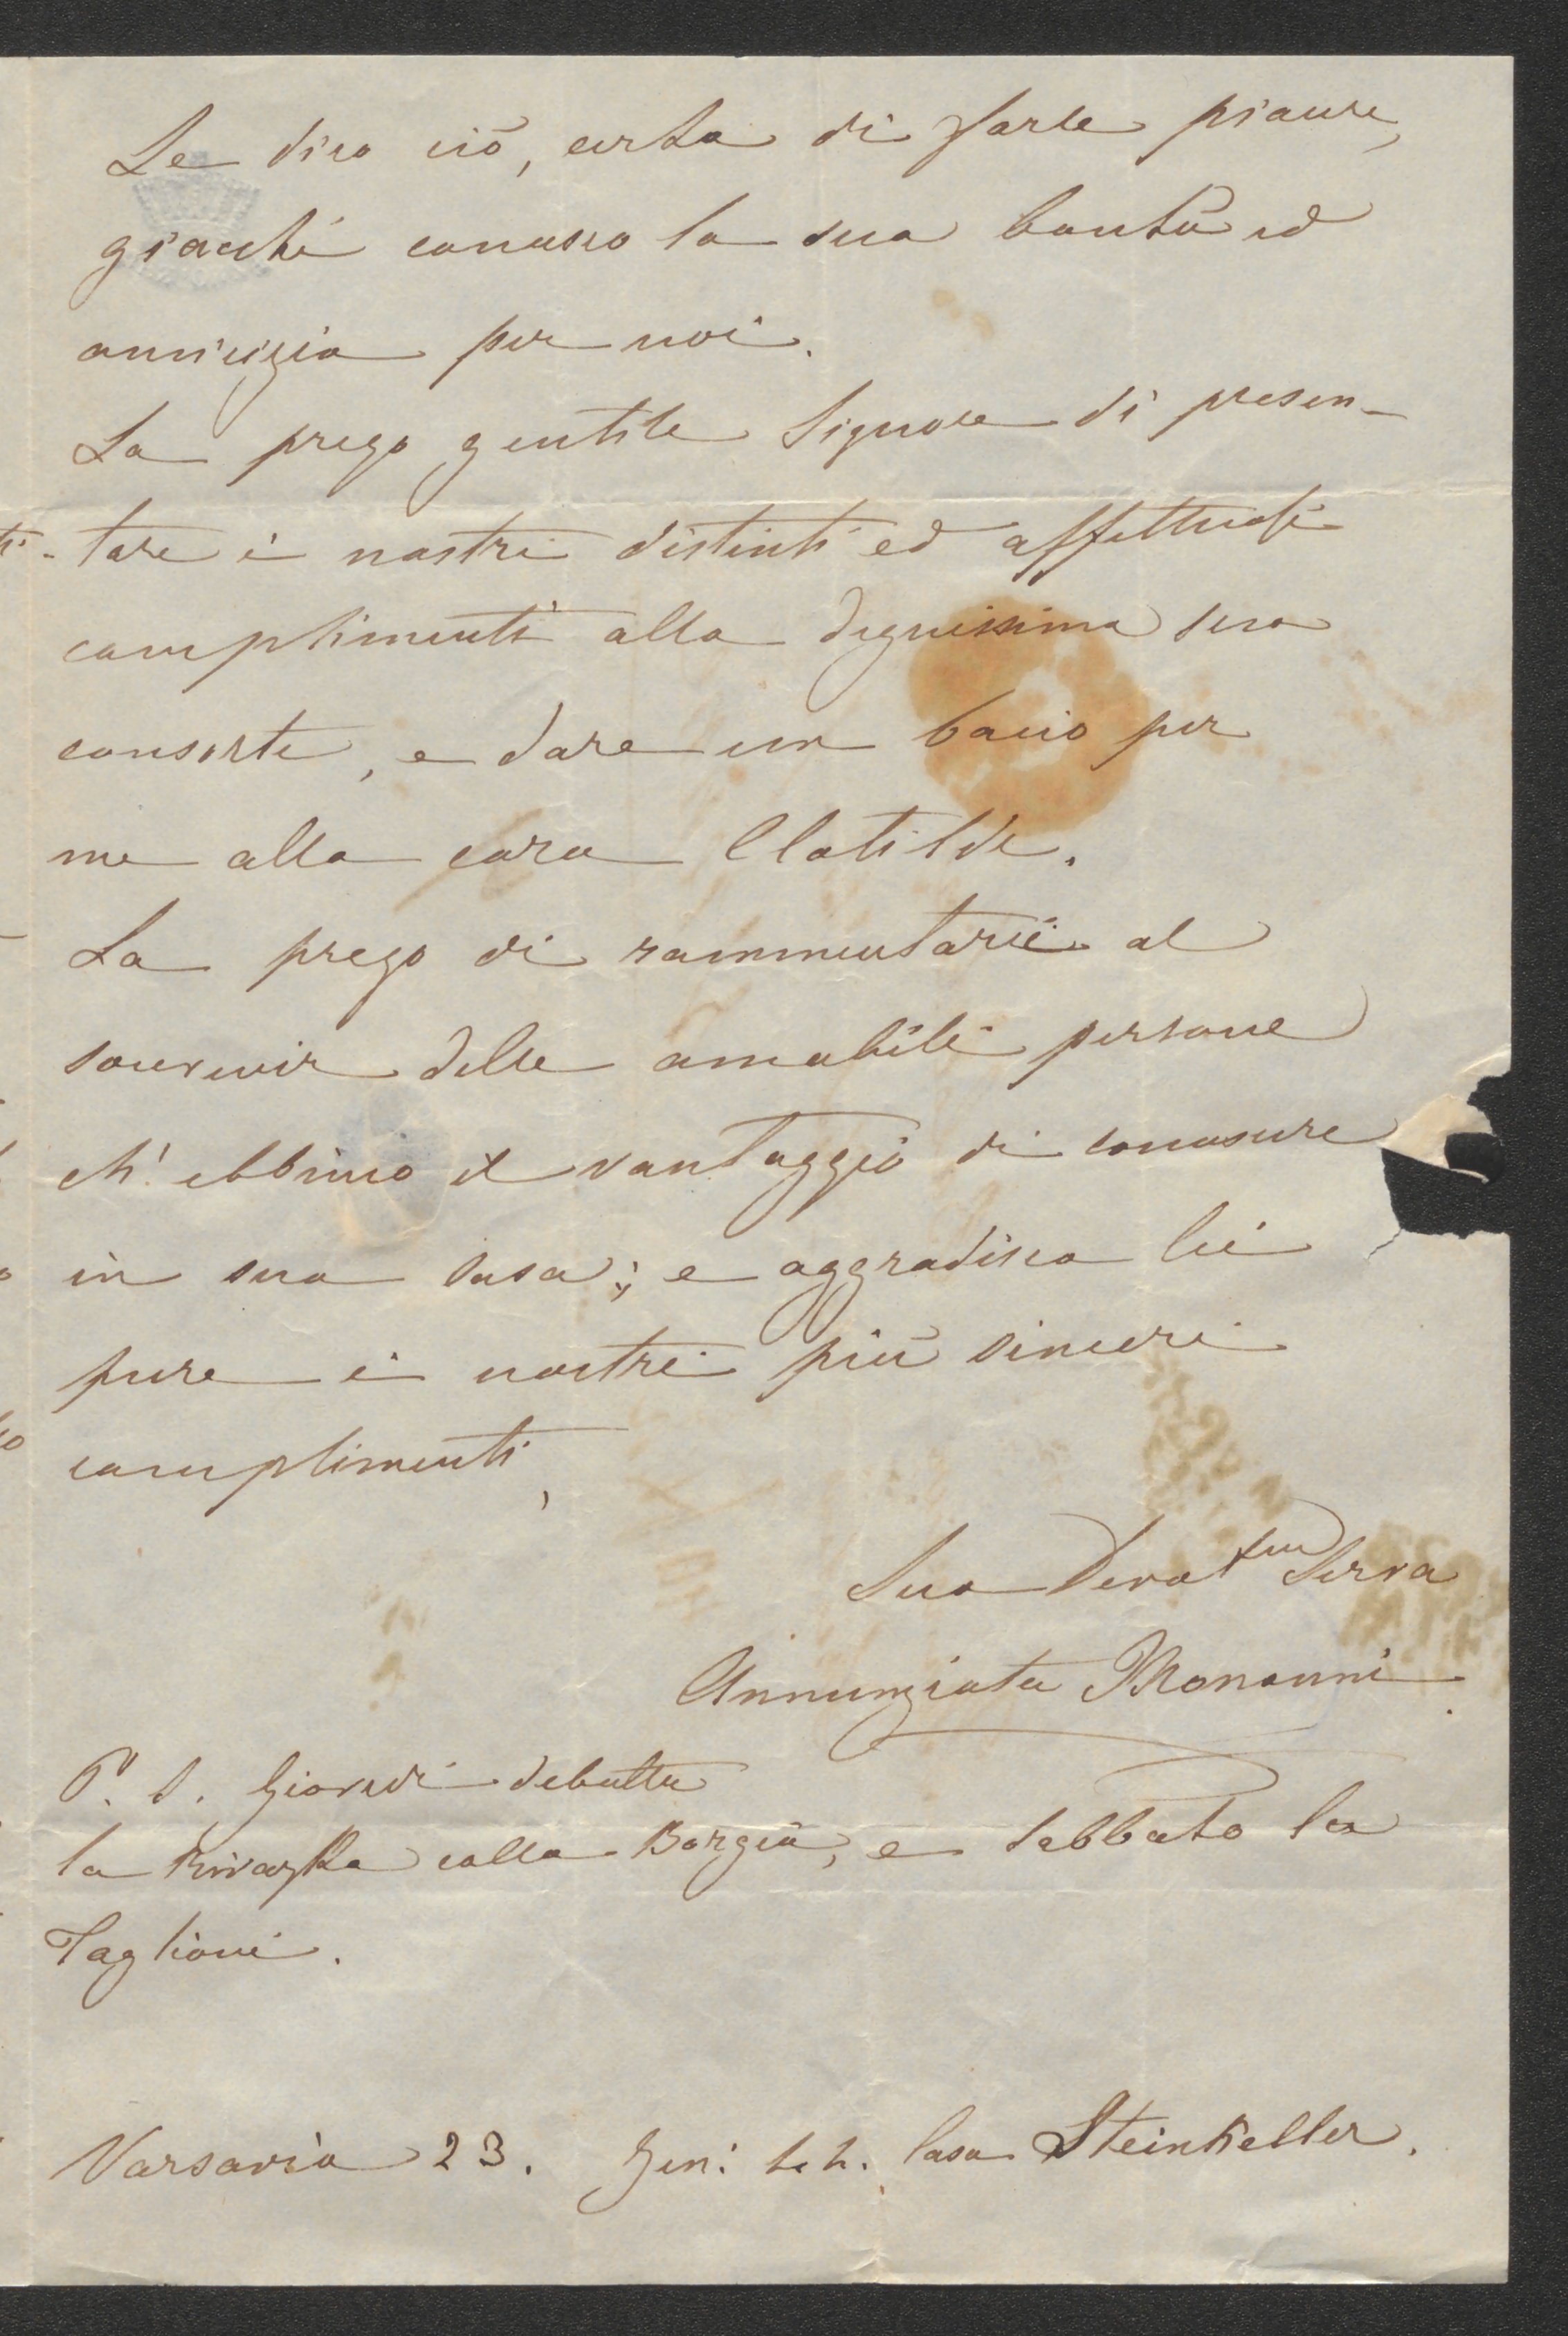 Le dico ciò, certa di farle piacere,
giacchè conosco la sua bontà ed
amicizia per noi.
La prego gentile Signore di presen-
-tare i nostri distinti ed affettuosi
complimenti alla degnissima sua
consorte, e dare un bacio per
me alla cara Clotilde.
La prego di rammentarci al
souvenir delle amabili persone
ch'ebbimo il vantaggio di conoscere
in sua casa; e aggradisca lei
pure i nostri più sinceri
complimenti,
Sua Devotma Serva
Annunziata Mononni
P. S. Giovedi debutta
la colla Borgia, e sabbato la
Taglioni.
Varsavia 23. Casa Steinkeller.